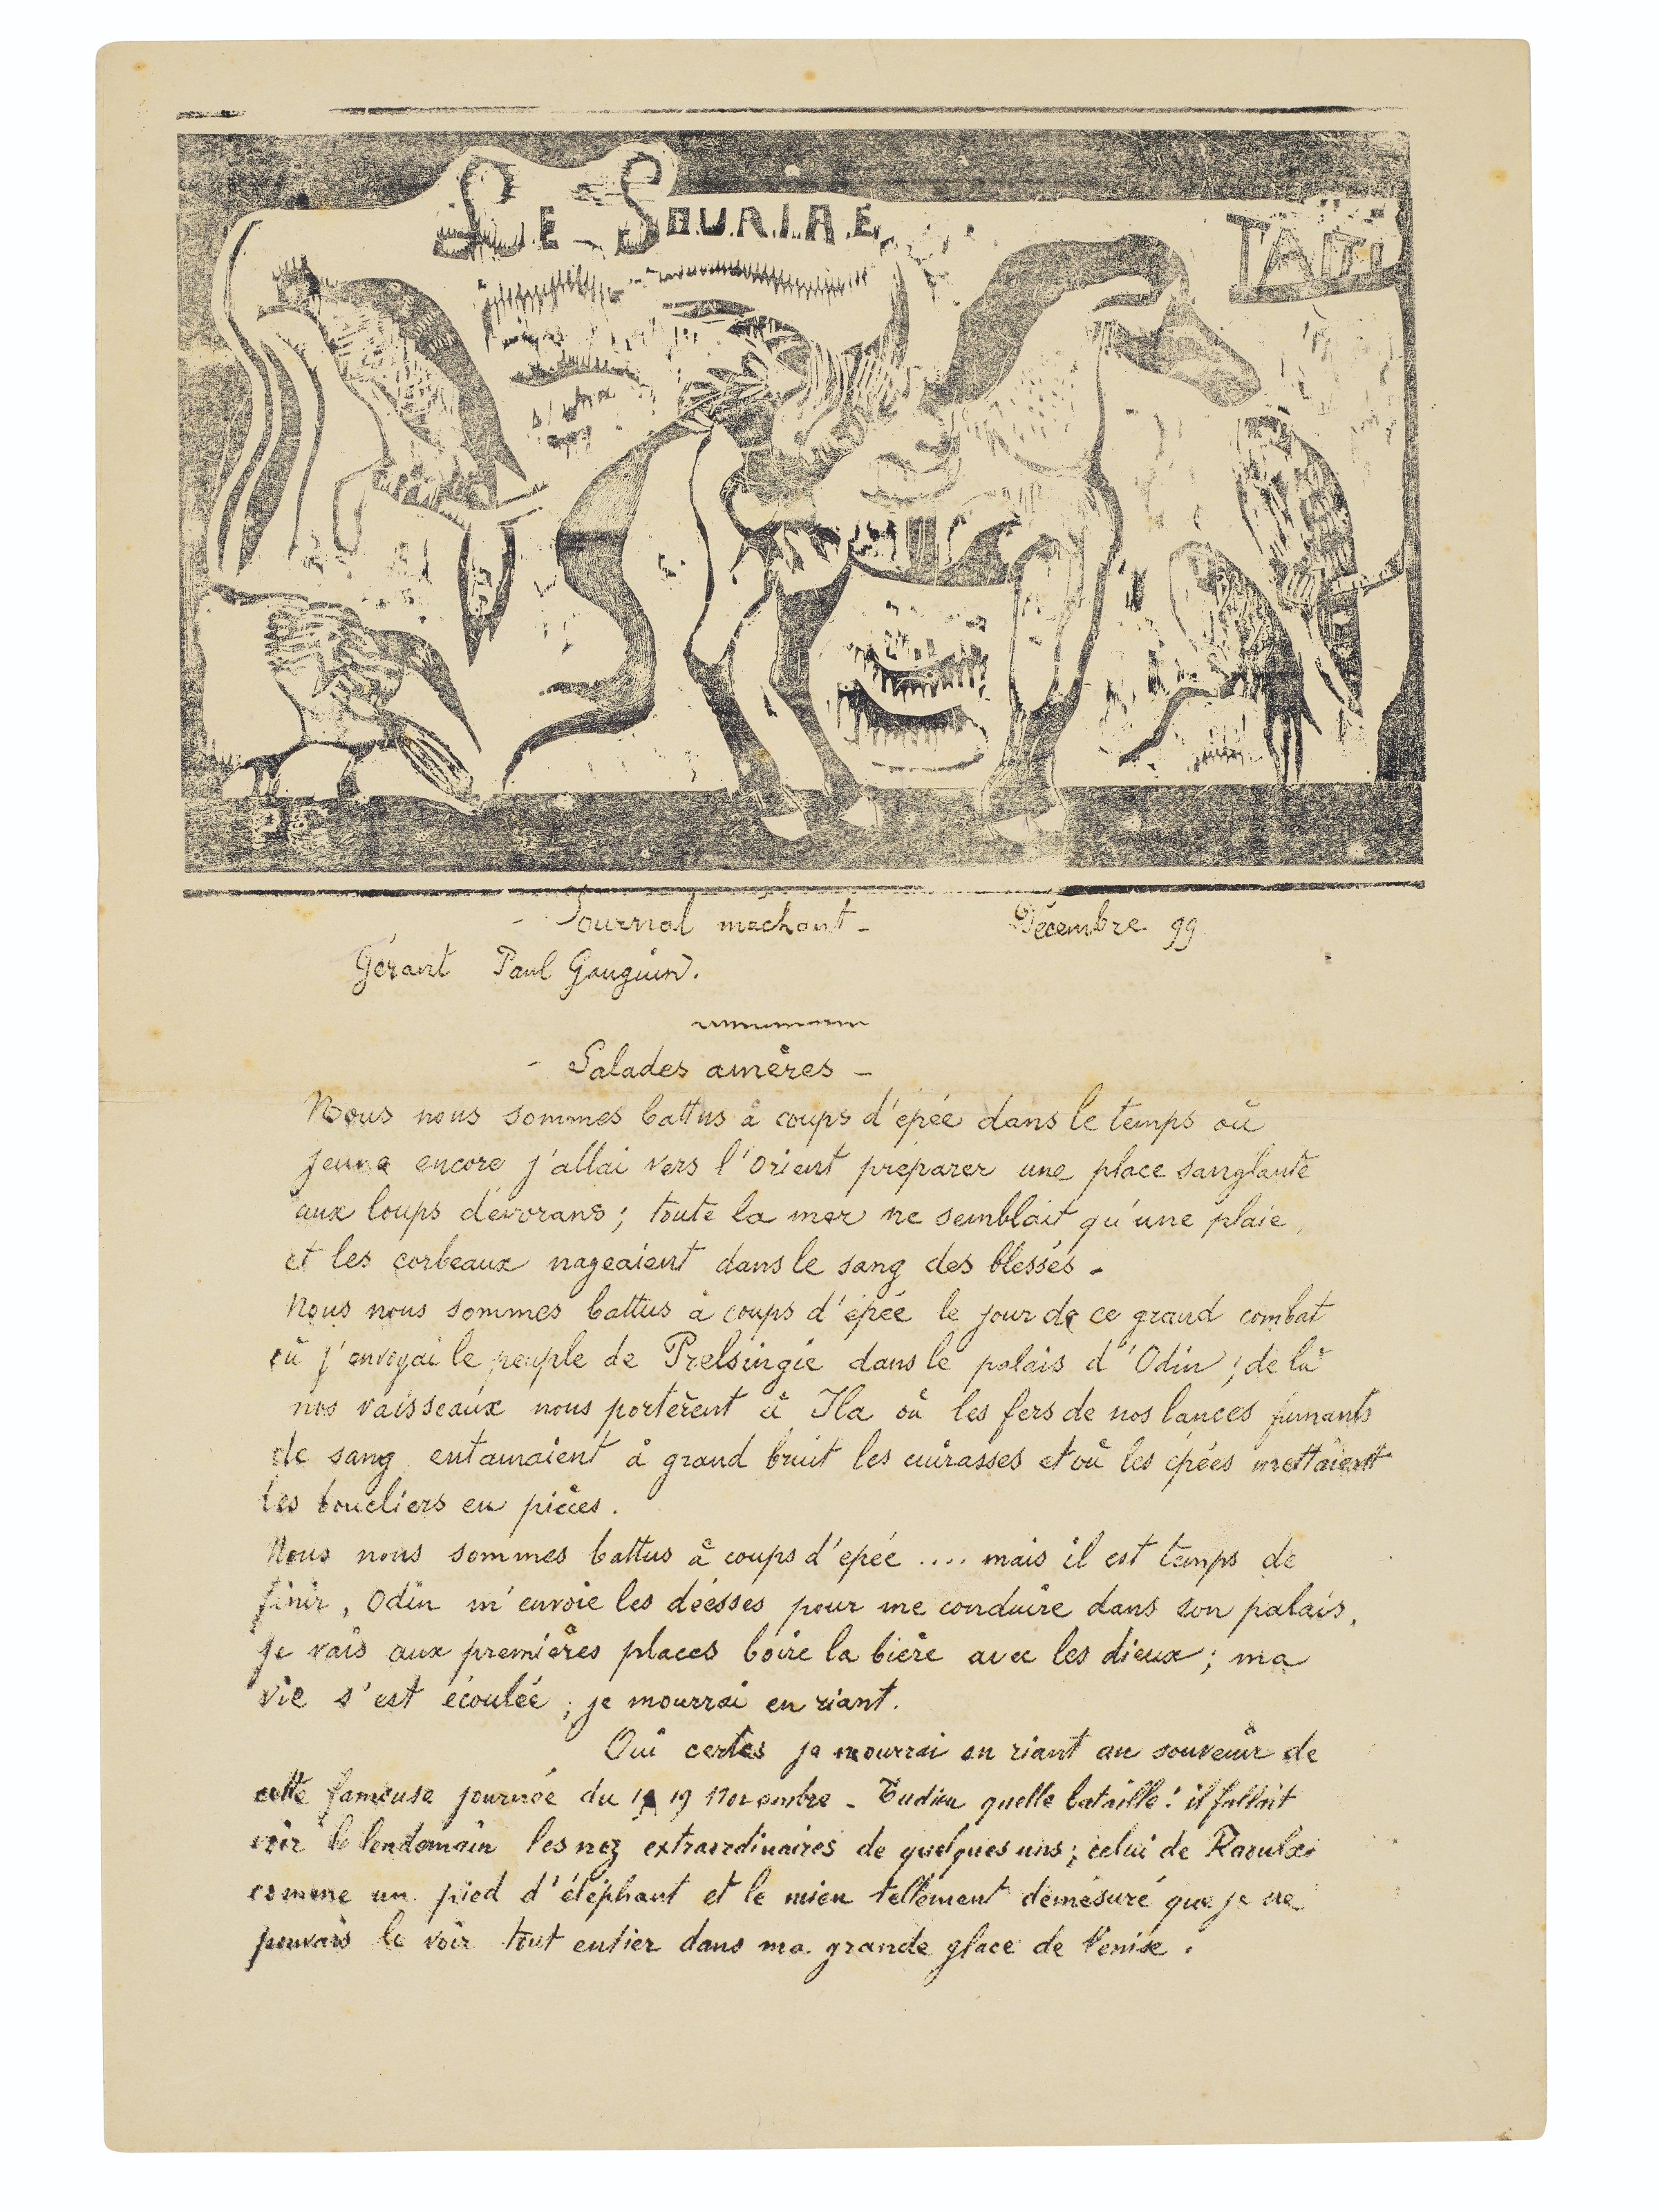 LE SOURIRE
TAITI
- Journal méchant - Décembre 99
Gérant Paul Gauguin.
- Salades amères -
Nous nous sommes battus à coups d'épée dans le temps où
jeune encore j'allai vers l'Orient préparer une place sanglante
aux loups dévorans; toute la mer ne semblait qu'une plaie,
et les corbeaux nageaient dans le sang des blessés -
Nous nous sommes battus à coups d'épée le jour de ce grand combat
où j'envoyai le peuple de Prelsingie dans le palais d'Odin; de là
nos vaisseaux nous portèrent à Ila où les fers de nos lances fumants
de sang entamaient à grand bruit les cuirasses et où les épées mettaient
les boucliers en pièces.
Nous nous sommes battus à coups d'epée .... mais il est temps de
finir, Odin m'envoie les déesses pour me conduire dans son palais.
Je vais aux premières places boire la bière avec les dieux; ma
vie s'est écoulée; je mourrai en riant.
Oui certes je mourrai en riant au souvenir de
cette fameuse journée du 19 Novembre - Tudieu quelle bataille! il fallait
voir le lendemain les nez extraordinaires de quelques uns; celui de
comme un pied d'éléphant et le mien tellement démesuré que je ne
pouvais le voir tout entier dans ma grande glace de Venise.